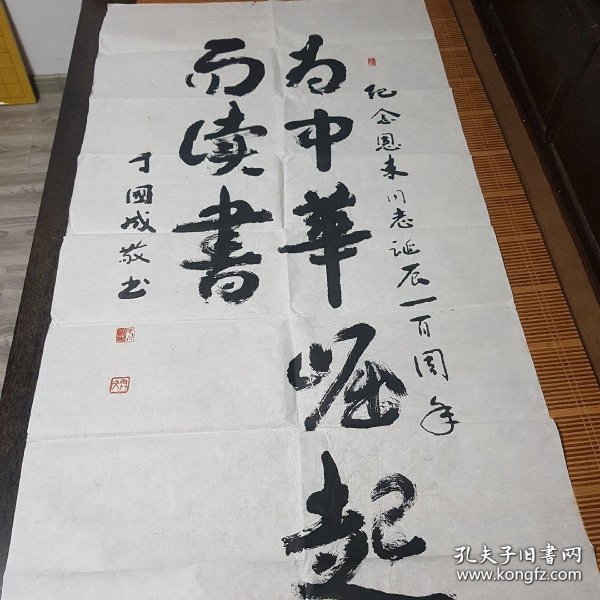 纪念恩来同志诞辰一百周年
为中華崛起
而读書
于國成敬书
孔夫子旧书网
www.kongfz.com